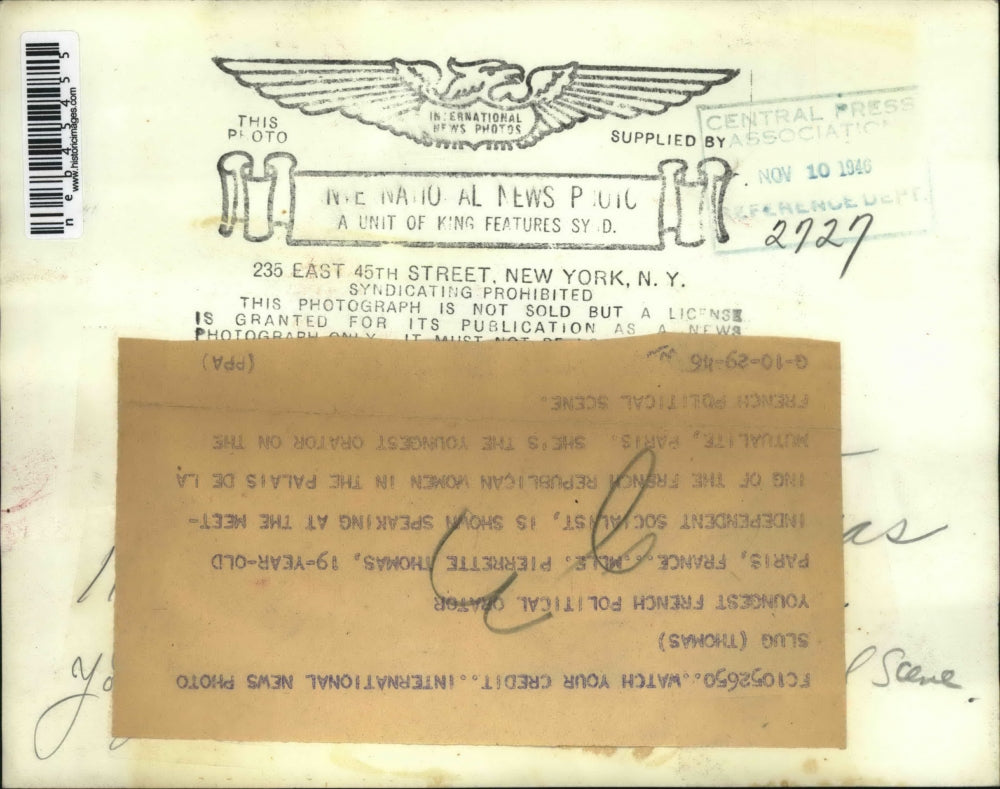 INTERNATIONAL
NEWS PHOTOS
THIS
PHOTO
SUPPLIED BY
CENTRAL PRESS
ASSOCIATION
NOV 10 1946
REFERENCE DEPT.
2727
A UNIT OF KING FEATURES SY D.
235 EAST 45TH STREET, NEW YORK, N. Y.
SYNDICATING PROHIBITED
THIS PHOTOGRAPH IS NOT SOLD BUT A LICENSE
IS GRANTED FOR ITS PUBLICATION AS A NEWS
PHOTOGRAPH ONLY. IT MUST NOT BE
FC1052650..WATCH YOUR CREDIT..INTERNATIONAL NEWS PHOTO
SLUG (THOMAS)
YOUNGEST FRENCH POLITICAL ORATOR
PARIS, FRANCE...MLLE. PIERRETTE THOMAS, 19-YEAR-OLD
INDEPENDENT SOCIALIST, IS SHOWN SPEAKING AT THE MEET-
ING OF THE FRENCH REPUBLICAN WOMEN IN THE PALAIS DE LA
MUTUALITE, PARIS. SHE'S THE YOUNGEST ORATOR ON THE
FRENCH POLITICAL SCENE.
G-10-29-46 (PPA)
as
Scene.
neb45455
www.historicimages.com